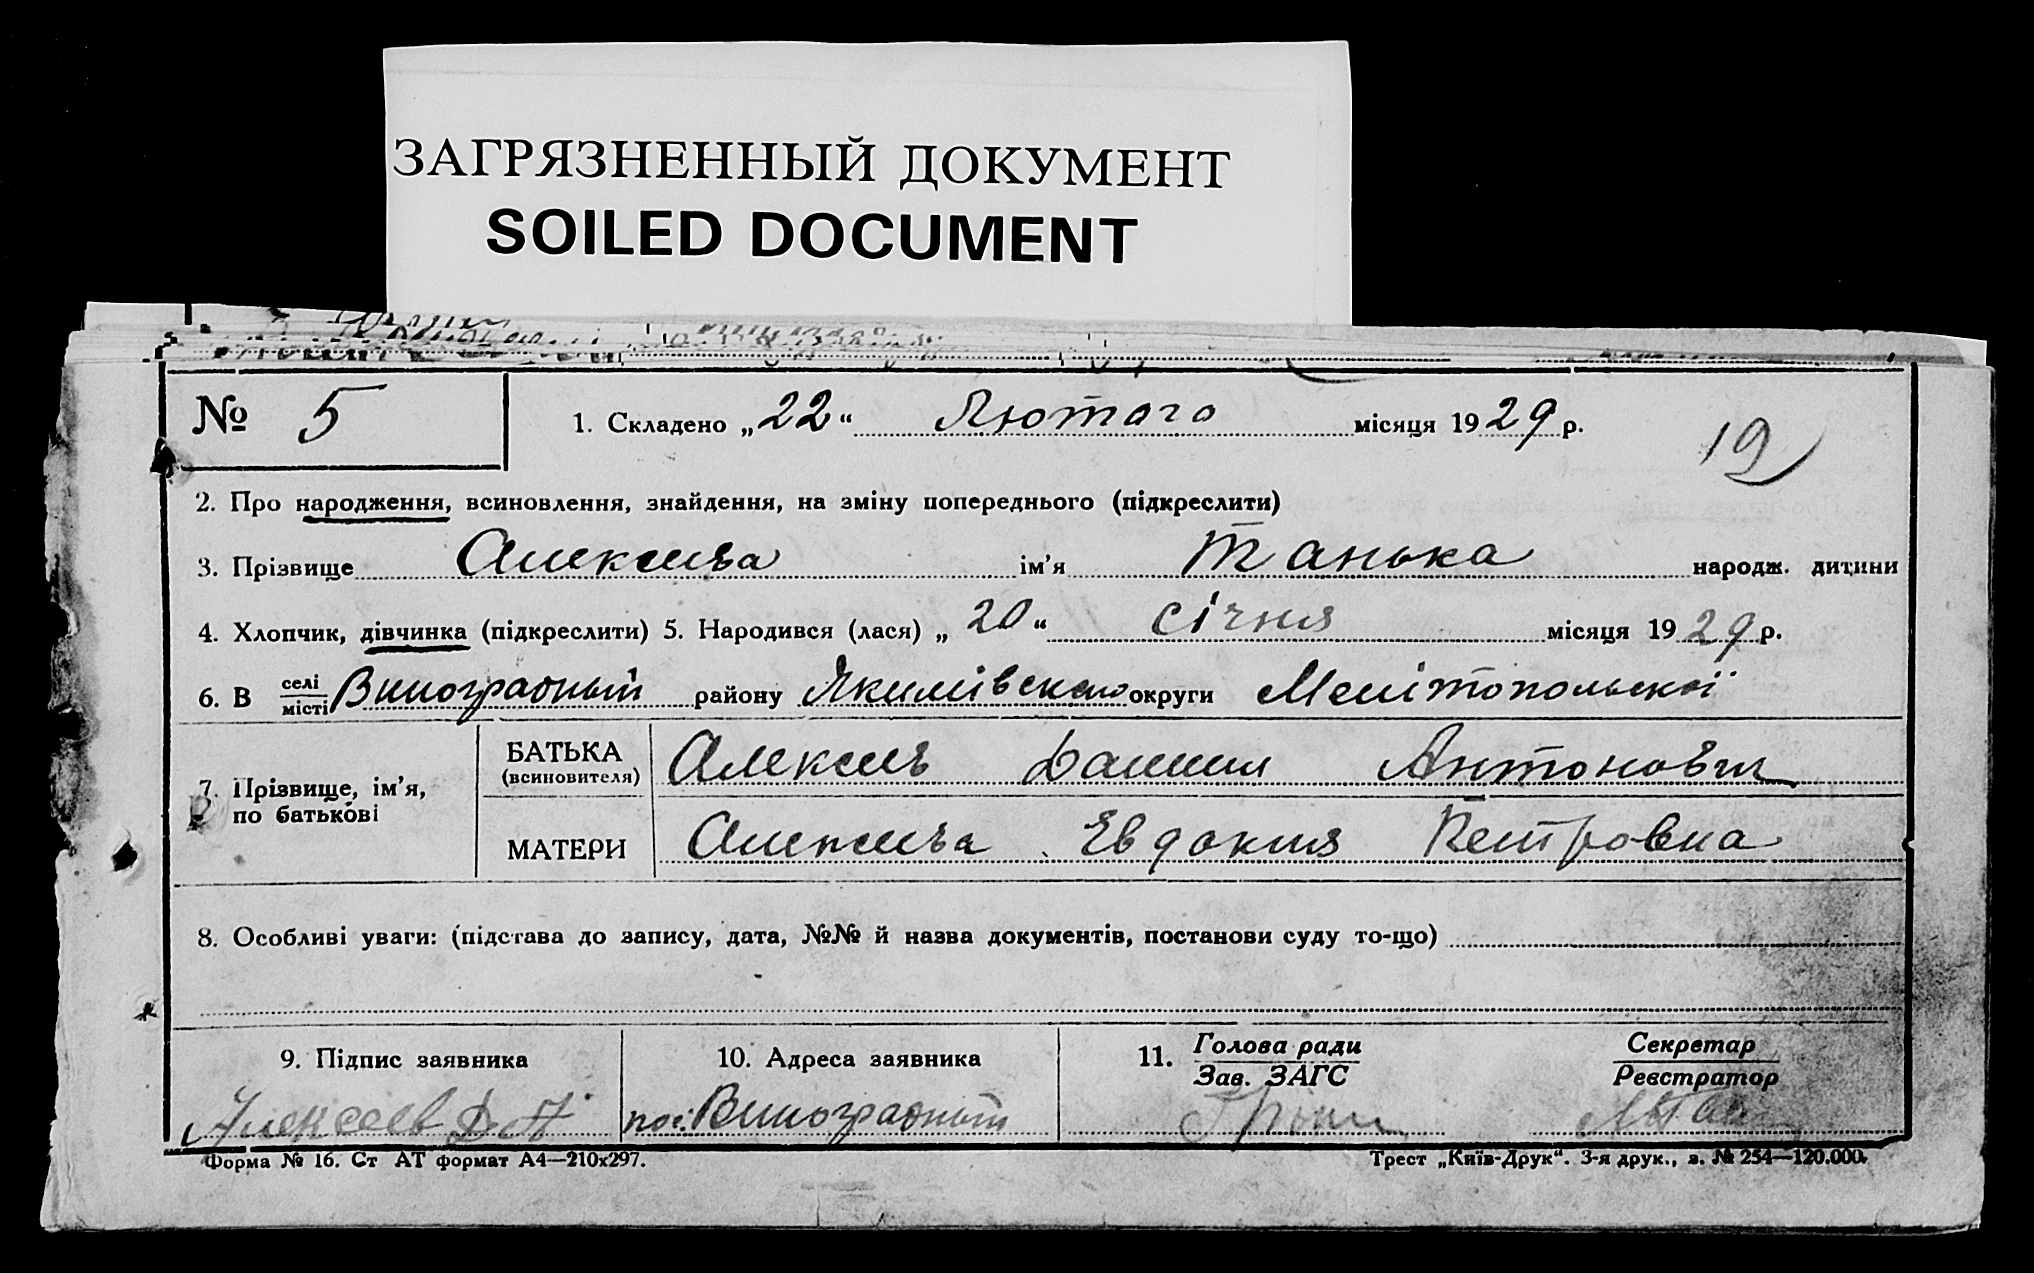 ЗАГРЯЗНЕННЫЙ ДОКУМЕНТ
SOILED DOCUMENT
№ 5
1. Складено „22“ Лютого місяця 1929 р.
19
2. Про народження, всиновлення, знайдення, на зміну попереднього (підкреслити)
3. Прізвище Алексеева ім’я Танька народж. дитини
4. Хлопчик, дівчинка (підкреслити) 5. Народився (лася) „20“ січня місяця 1929 р.
6. В селі місті Виноградный району Якимівского округи Мелітопольскої
7. Прізвище, ім’я, по батькові
БАТЬКА (всиновителя) Алексеев Даниил Антонович
МАТЕРИ Алексеева Евдокия Петровна
8. Особливі уваги: (підстава до запису, дата, №№ й назва документів, постанови суду то-що)
9. Підпис заявника
Алексеев Д А
10. Адреса заявника
пос. Виноградный
11. Голова ради Зав. ЗАГС
Секретар Реєстратор
Форма № 16. Ст АТ формат А4—210х297.
Трест „Київ-Друк“. 3-я друк., з. № 254—120.000.